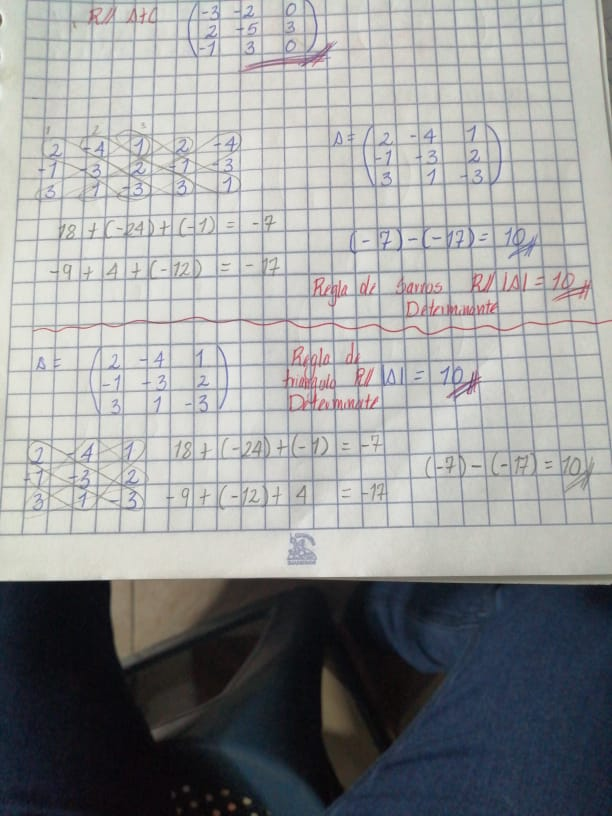 R// A+C
-3 -2 0
2 -5 3
-1 3 0
1 2 3
2 -4 1 2 -4
-1 -3 2 -1 -3
3 1 -3 3 1
A= 2 -4 1
-1 -3 2
3 1 -3
18 + (-24) + (-1) = -7
-9 + 4 + (-12) = -17
(-7) - (-17) = 10
Regla de Sarros R// |A| = 10
Determinante
A= 2 -4 1
-1 -3 2
3 1 -3
Regla de
triángulo R// |A| = 10
Determinate
2 -4 1
-1 -3 2
3 1 -3
18 + (-24) + (-1) = -7
-9 + (-12) + 4 = -17
(-7) - (-17) = 10